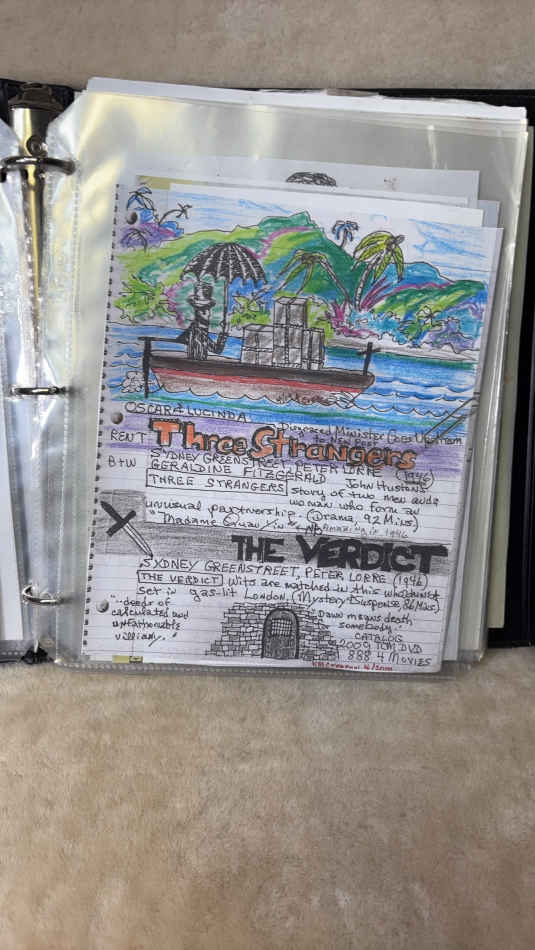 OSCAR & LUCINDA
Disgraced Minister Goes Upstream
to New Post
RENT Three Strangers
B+W SYDNEY GREENSTREET, PETER LORRE (1946)
GERALDINE FITZGERALD John Huston's
THREE STRANGERS story of two men and a
woman who form an
unusual partnership. (Drama, 92 Mins)
"Madame Quan Yin" in 1946
THE VERDICT
SYDNEY GREENSTREET, PETER LORRE (1946)
THE VERDICT wits are matched in this whodunit
set in gas-lit London. (Mystery-Suspense, 86 Mins)
"-deeds of
calculated and
unfathomable
villiany."
"Dawn means death
somebody."
CATALOG
2009 TCM DVD
888 4 MOVIES